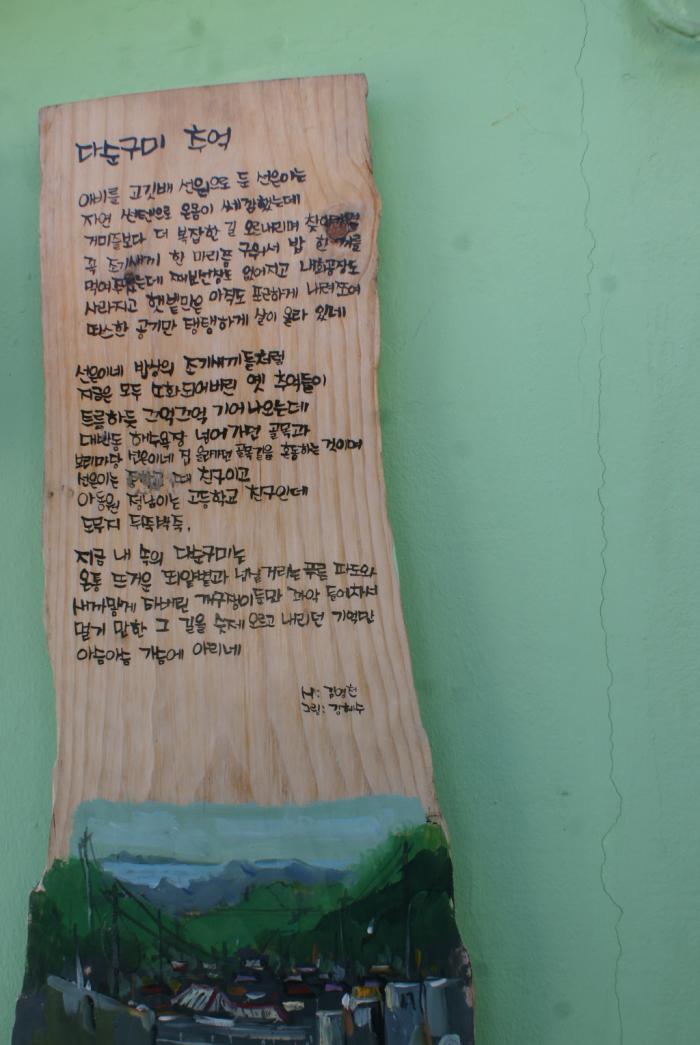 다순구미 추억
애비를 고깃배 선원으로 둔 선은이는
자연 썬텐으로 온몸이 쌔깜했는데
거미줄보다 더 복잡한 길 오르내리며
꼭 조기새끼 한 마리쯤 구워서 밥 한
없어지고
사라지고 햇볕만은 아직도 포근하게 내려쪼여
따스한 공기만 탱탱하게 살이 올라 있네
선은이네 밥상의 조기새끼들처럼
지금은 모두 되어버린 옛 추억들이
트름하듯 끄억끄억 기어나오는데
대반동 해수욕장 넘어가던 골목과
보리마당 선은이네 집 골목길을 혼동하는 것이며
선은이는 때 친구이고
아동원 정남이는 고등학교 친구인데
도무지 뒤뚝박뚝.
지금 내 속의 다순구미는
온통 뜨거운 뙤약볕과 넘실거리는 푸른 파도와
새까맣게 타버린 개구쟁이들만 가득 들어차서
멀기 만한 그 길을 오르고 내리던 기억만
아슴아슴 가슴에 아리네
그림: